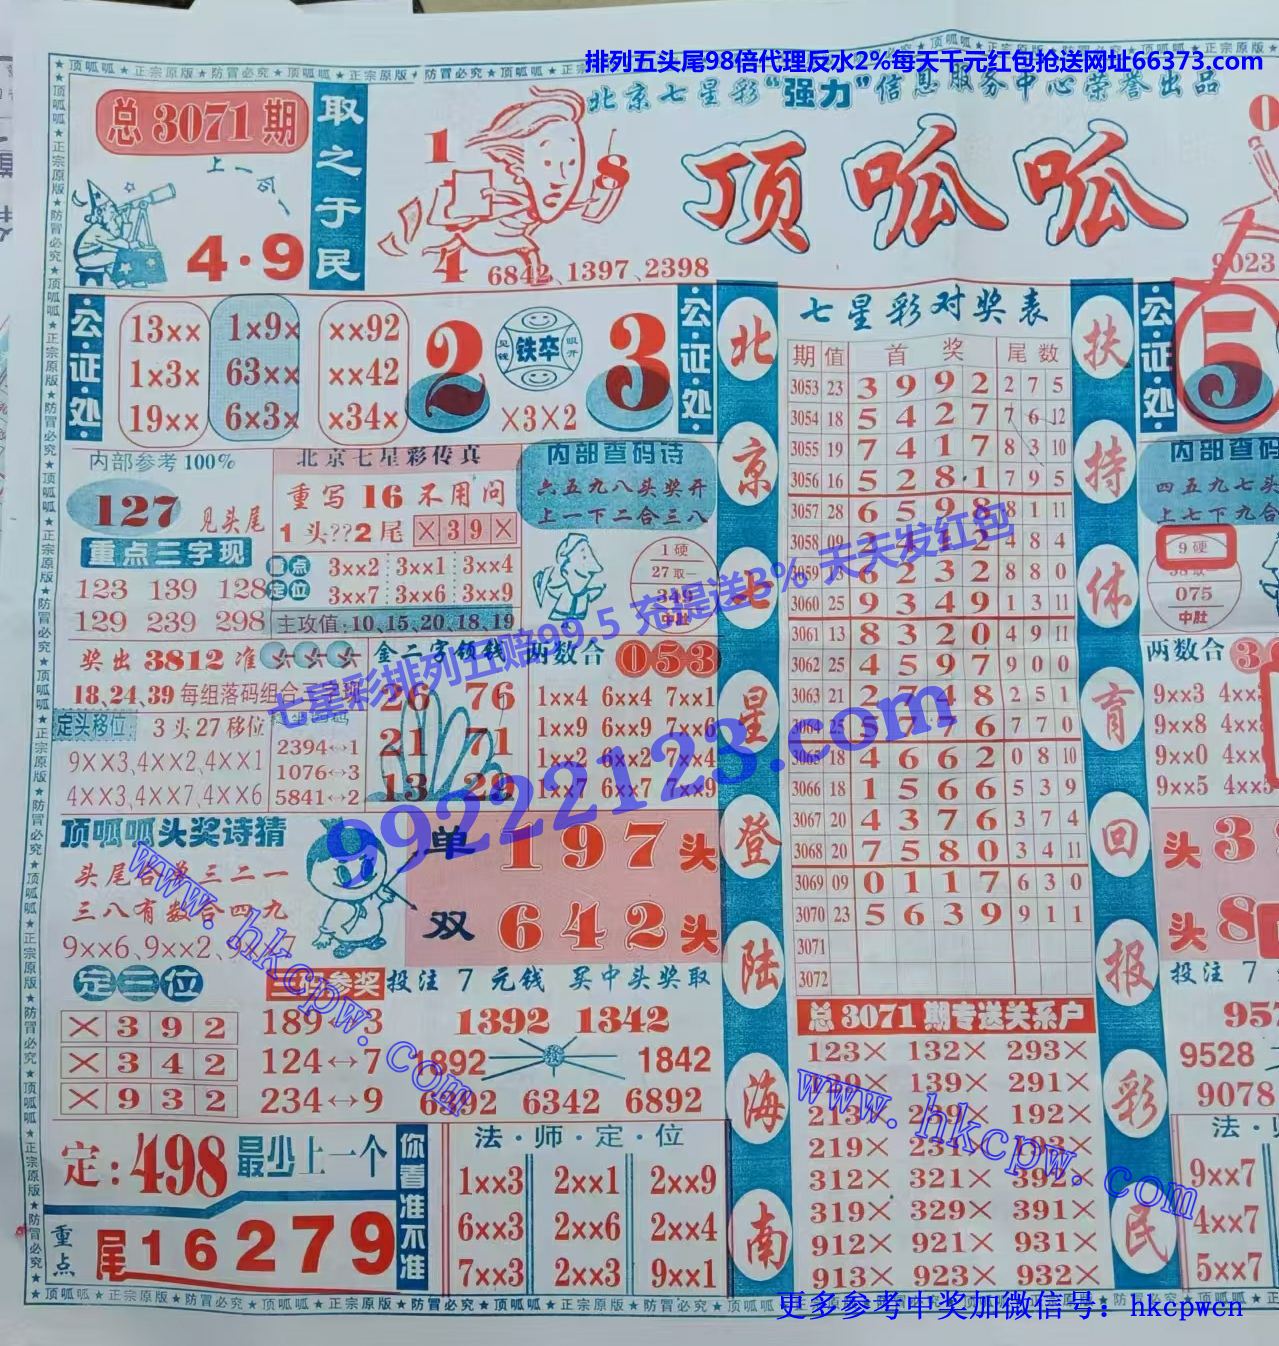 排列五头尾98倍代理反水2%每天千元红包抢送网址66373.com
北京七星彩“强力”信息服务中心荣誉出品
总3071期
取之于民
4·9
1
8
4
6842、1397、2398
顶呱呱
9023
公·证·处
13×× 1×9× ××92
1×3× 63×× ××42
19×× 6×3× ×34×
2 铁卒 3
×3×2
公·证·处
内部参考100%
127 见头尾
重点三字现
123 139 128
129 239 298
北京七星彩传真
重写16不用问
1头??2尾 ×39×
重点定位
3××2 3××1 3××4
3××7 3××6 3××9
主攻值:10、15、20、18、19
内部查码诗
六五九八头奖开
上一下二合三八
1硬
27取一
349
中肚
奖出3812准
18、24、39每组落码组合三字现
定头移位 3头27移位
9××3、4××2、4××1
4××3、4××7、4××6
2394↔1
1076↔3
5841↔2
金二字领钱
26 76
21 71
13 29
两数合 053
1××4 6××4 7××1
1××9 6××9 7××6
1××2 6××2 7××4
1××7 6××7 7××9
顶呱呱头奖诗猜
头尾合单三二一
三八有数合四九
9××6、9××2、9××7
单 197头
双 642头
定三位
×392
×342
×932
三码参奖
189↔3
124↔7
234↔9
投注7元钱 买中头奖取
1392 1342
1892 1842
6392 6342 6892
定:498最少上一个
重点 尾16279
你看准不准
法·师·定·位
1××3 2××1 2××9
6××3 2××6 2××4
7××3 2××3 9××1
北京七星登陆海南
七星彩对奖表
期 值 首奖 尾数
3053 23 3 9 9 2 2 7 5
3054 18 5 4 2 7 7 6 12
3055 19 7 4 1 7 8 3 10
3056 16 5 2 8 1 7 9 5
3057 28 6 5 9 8 8 1 11
3058 09 2 2 4 8 4
3059 6 2 3 2 8 8 0
3060 25 9 3 4 9 1 3 11
3061 13 8 3 2 0 4 9 11
3062 25 4 5 9 7 9 0 0
3063 21 2 7 4 8 2 5 1
3064 25 5 7 7 6 7 7 0
3065 18 4 6 6 2 0 8 10
3066 18 1 5 6 6 5 3 9
3067 20 4 3 7 6 3 7 4
3068 20 7 5 8 0 3 4 11
3069 09 0 1 1 7 6 3 0
3070 23 5 6 3 9 9 1 1
3071
3072
总3071期专送关系户
123× 132× 293×
129× 139× 291×
213× 239× 192×
219× 231× 193×
312× 321× 392×
319× 329× 391×
912× 921× 931×
913× 923× 932×
扶持体育回报彩民
公·证·处
5
内部查码
四五九七头
上七下九合
9硬
38取
075
中肚
两数合 3
9××3
9××8
9××0
9××5
头3
头8
投注7
9528
9078
法·
9××7
4××7
5××7
七星彩排列五赔99.5 充提送3% 天天发红包
99222123.com
www.hkcpw.com
www.hkcpw.com
更多参考中奖加微信号: hkcpwcn